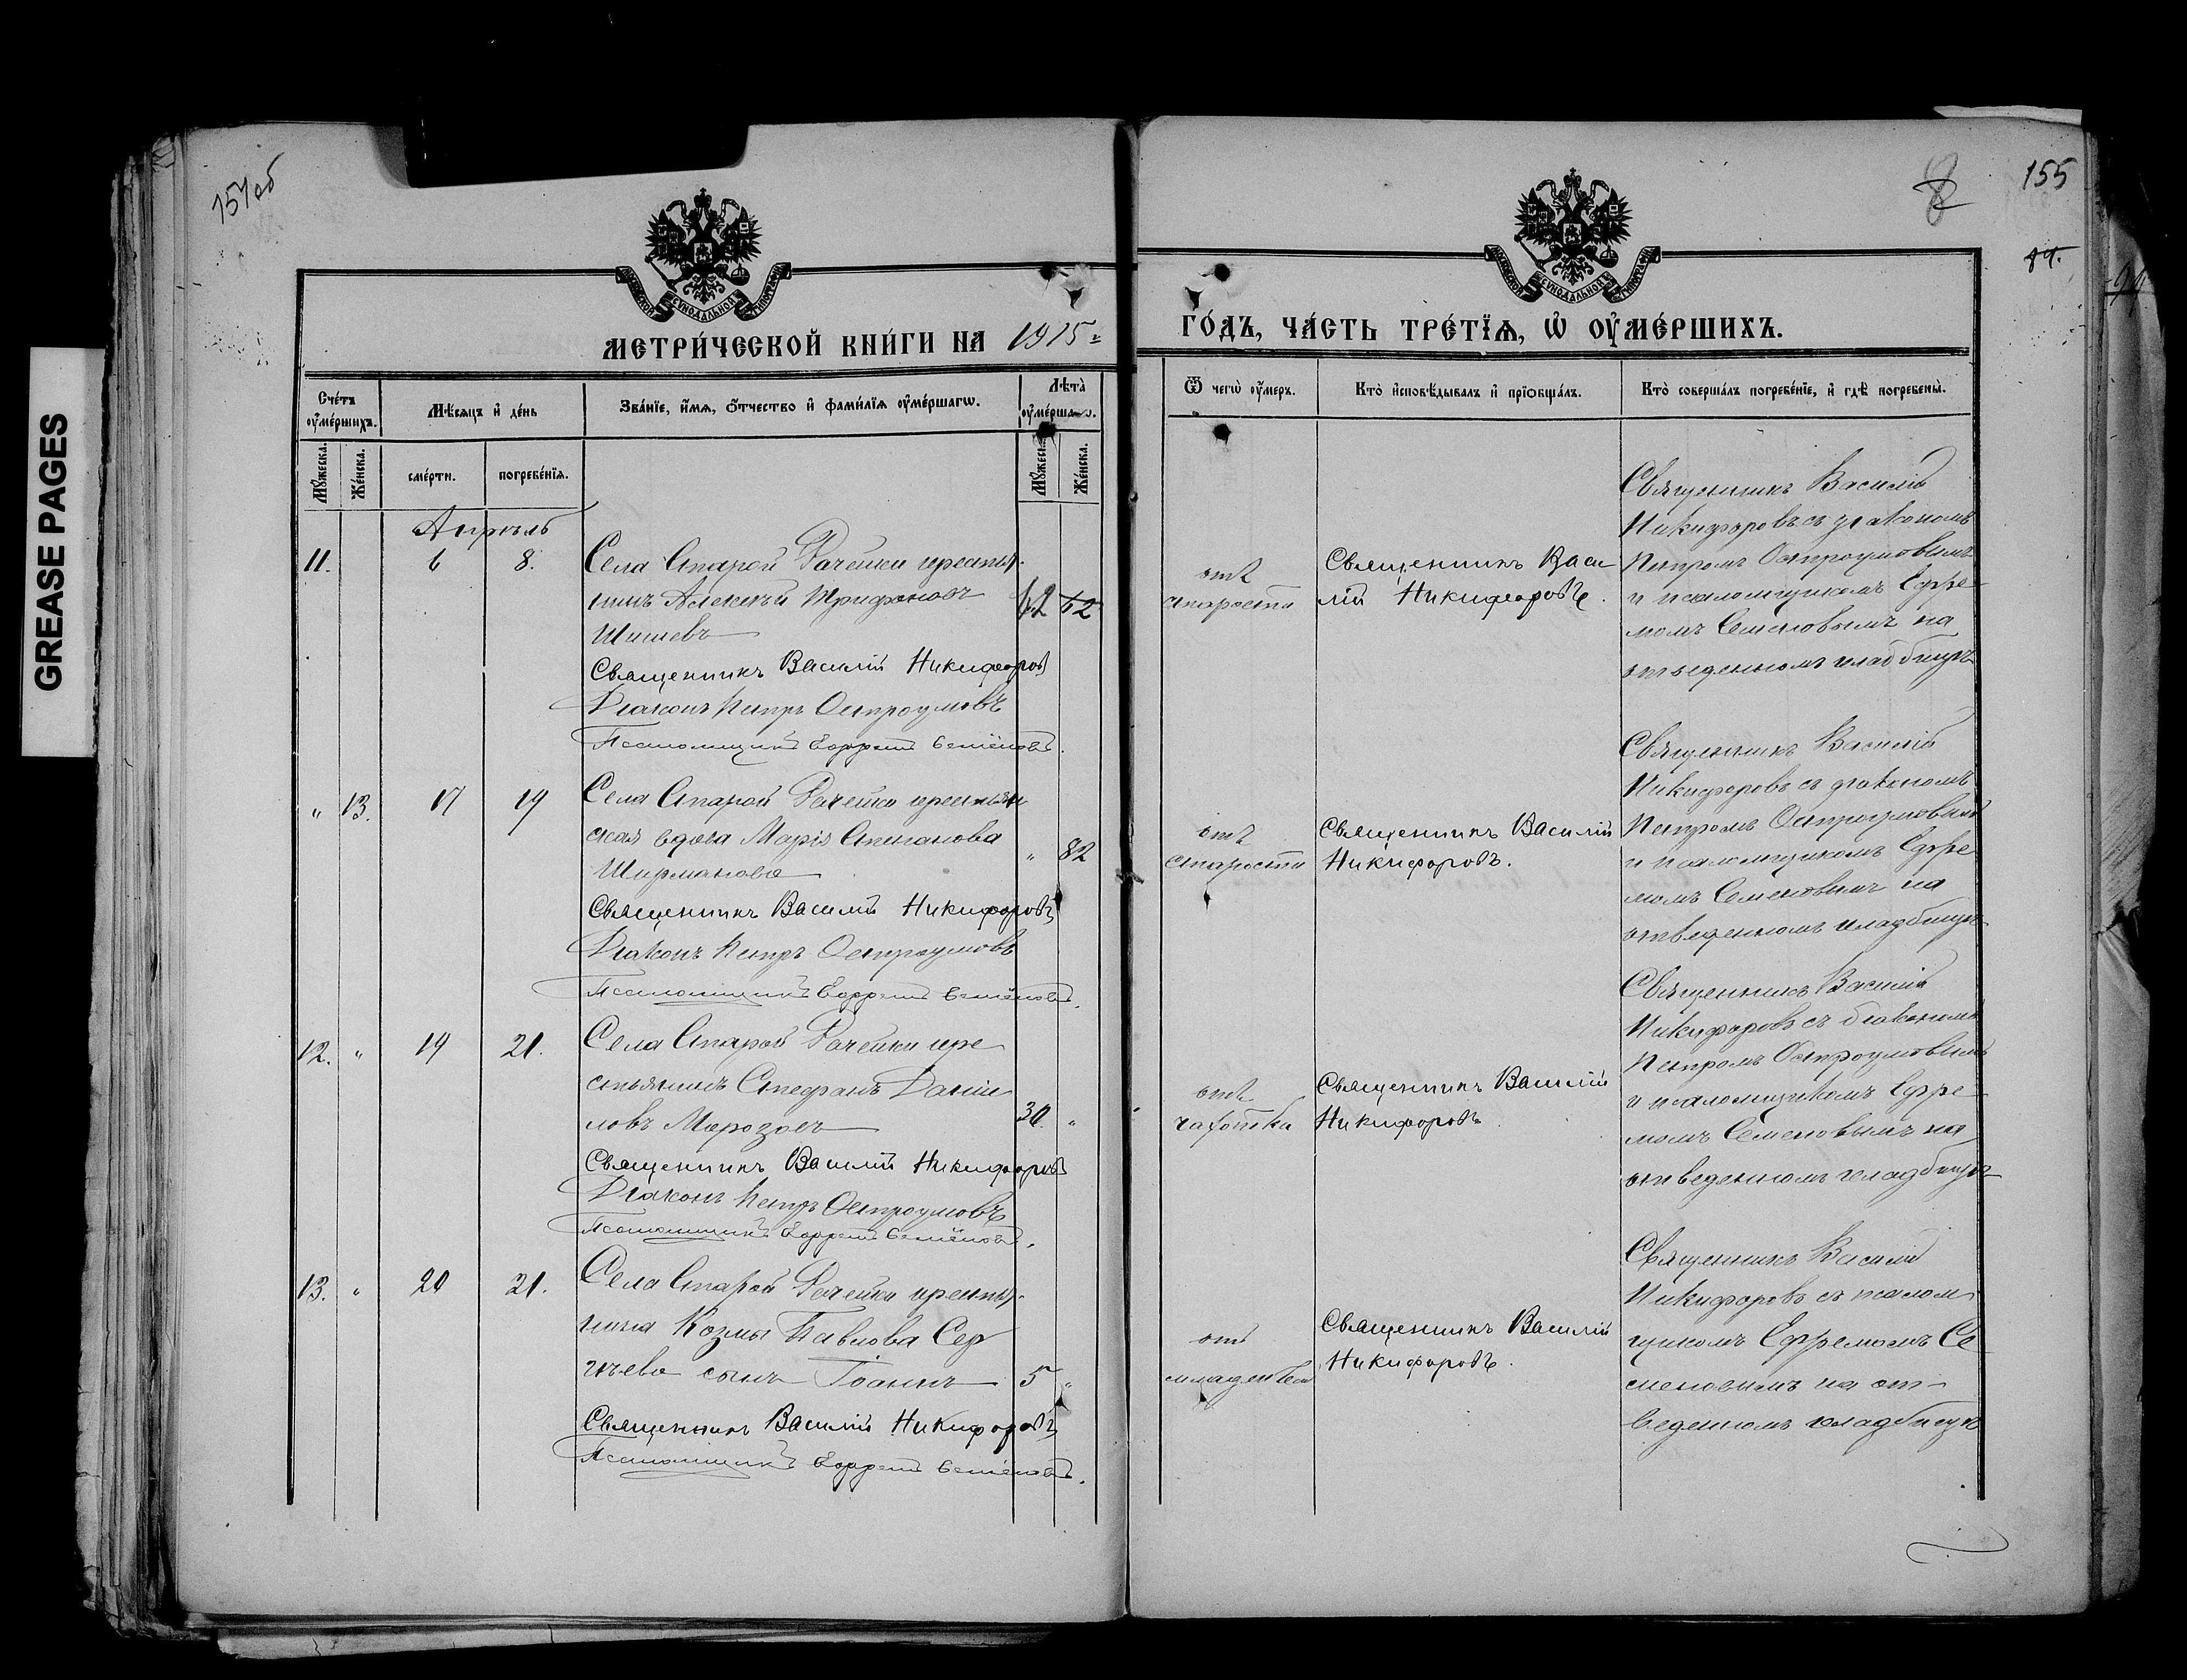 154об
155
84.
GREASE PAGES
МЕТРИ́ЧЕСКОЙ КНИ́ГИ НА 1915
ГО́ДЪ, ЧА́СТЬ ТРЕ́ТЇѦ, Ѡ҆ ОУ҆МЕ́РШИХЪ.
Сче́тъ оу҆ме́ршихъ.
Мѣ́сѧцъ и҆ де́нь
Зва́нїе, и҆́мѧ, ѻ҆́тчество и҆ фами́лїѧ оу҆ме́ршагѡ.
Лѣ́та оу҆ме́ршагѡ.
Ѿ чегѡ̀ оу҆́меръ.
Кто̀ и҆сповѣ́дывалъ и҆ прїѻбща́лъ.
Кто̀ соверша́лъ погребе́нїе, и҆ гдѣ̀ погребены̀.
Мꙋ́жеска.
Же́нска.
сме́рти.
погребе́нїѧ.
Мꙋ́жеска.
Же́нска.
Апрѣль
11.
6
8.
Села Старой Рачейки крестья
нинъ Алексѣй Трифоновъ
Шишевъ
Священникъ Василій Никифоровъ
Діаконъ Петръ Остроумовъ
Псаломщикъ Ефремъ Семёновъ.
отъ
старости
Священникъ Васи
лій Никифоровъ.
Священникъ Василій
Никифоровъ съ діакономъ
Петромъ Остроумовымъ
и псаломщикомъ Ефре
момъ Семеновымъ на
отведенномъ кладбищѣ
"
13.
17
19
Села Старой Рачейки крестьян
ская вдова Марія Степанова
Ширманова
"
82
Священникъ Василій Никифоровъ
Діаконъ Петръ Остроумовъ
Псаломщикъ Ефремъ Семёновъ.
отъ
старости
Священникъ Василій
Никифоровъ.
Священникъ Василій
Никифоровъ съ діакономъ
Петромъ Остроумовымъ
и псаломщикомъ Ефре
момъ Семеновымъ на
отведенномъ кладбищѣ
12.
"
19
21.
Села Старой Рачейки кре
стьянинъ Стефанъ Дании
ловъ Морозовъ
30
"
Священникъ Василій Никифоровъ
Діаконъ Петръ Остроумовъ
Псаломщикъ Ефремъ Семёновъ.
отъ
чахотка
Священникъ Василій
Никифоровъ
Священникъ Василій
Никифоровъ съ діакономъ
Петромъ Остроумовымъ
и псаломщикомъ Ефре
момъ Семеновымъ на
отведенномъ кладбищѣ
13.
"
20
21.
Села Старой Рачейки крестья
нина Козмы Павлова Сер
гѣева сынъ Іоаннъ
5
"
Священникъ Василій Никифоровъ
Псаломщикъ Ефремъ Семёновъ.
отъ
Священникъ Василій
Никифоровъ.
Священникъ Василій
Никифоровъ съ псалом
щикомъ Ефремомъ Се
меновымъ на от-
веденномъ кладбищѣ